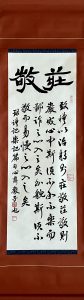 莊敬
致禮以治躬則莊敬莊敬則
嚴威心中斯須不和不樂而
鄙詐之心入之矣外貌斯須不
莊不敬而易慢之心入之矣
禮記樂記